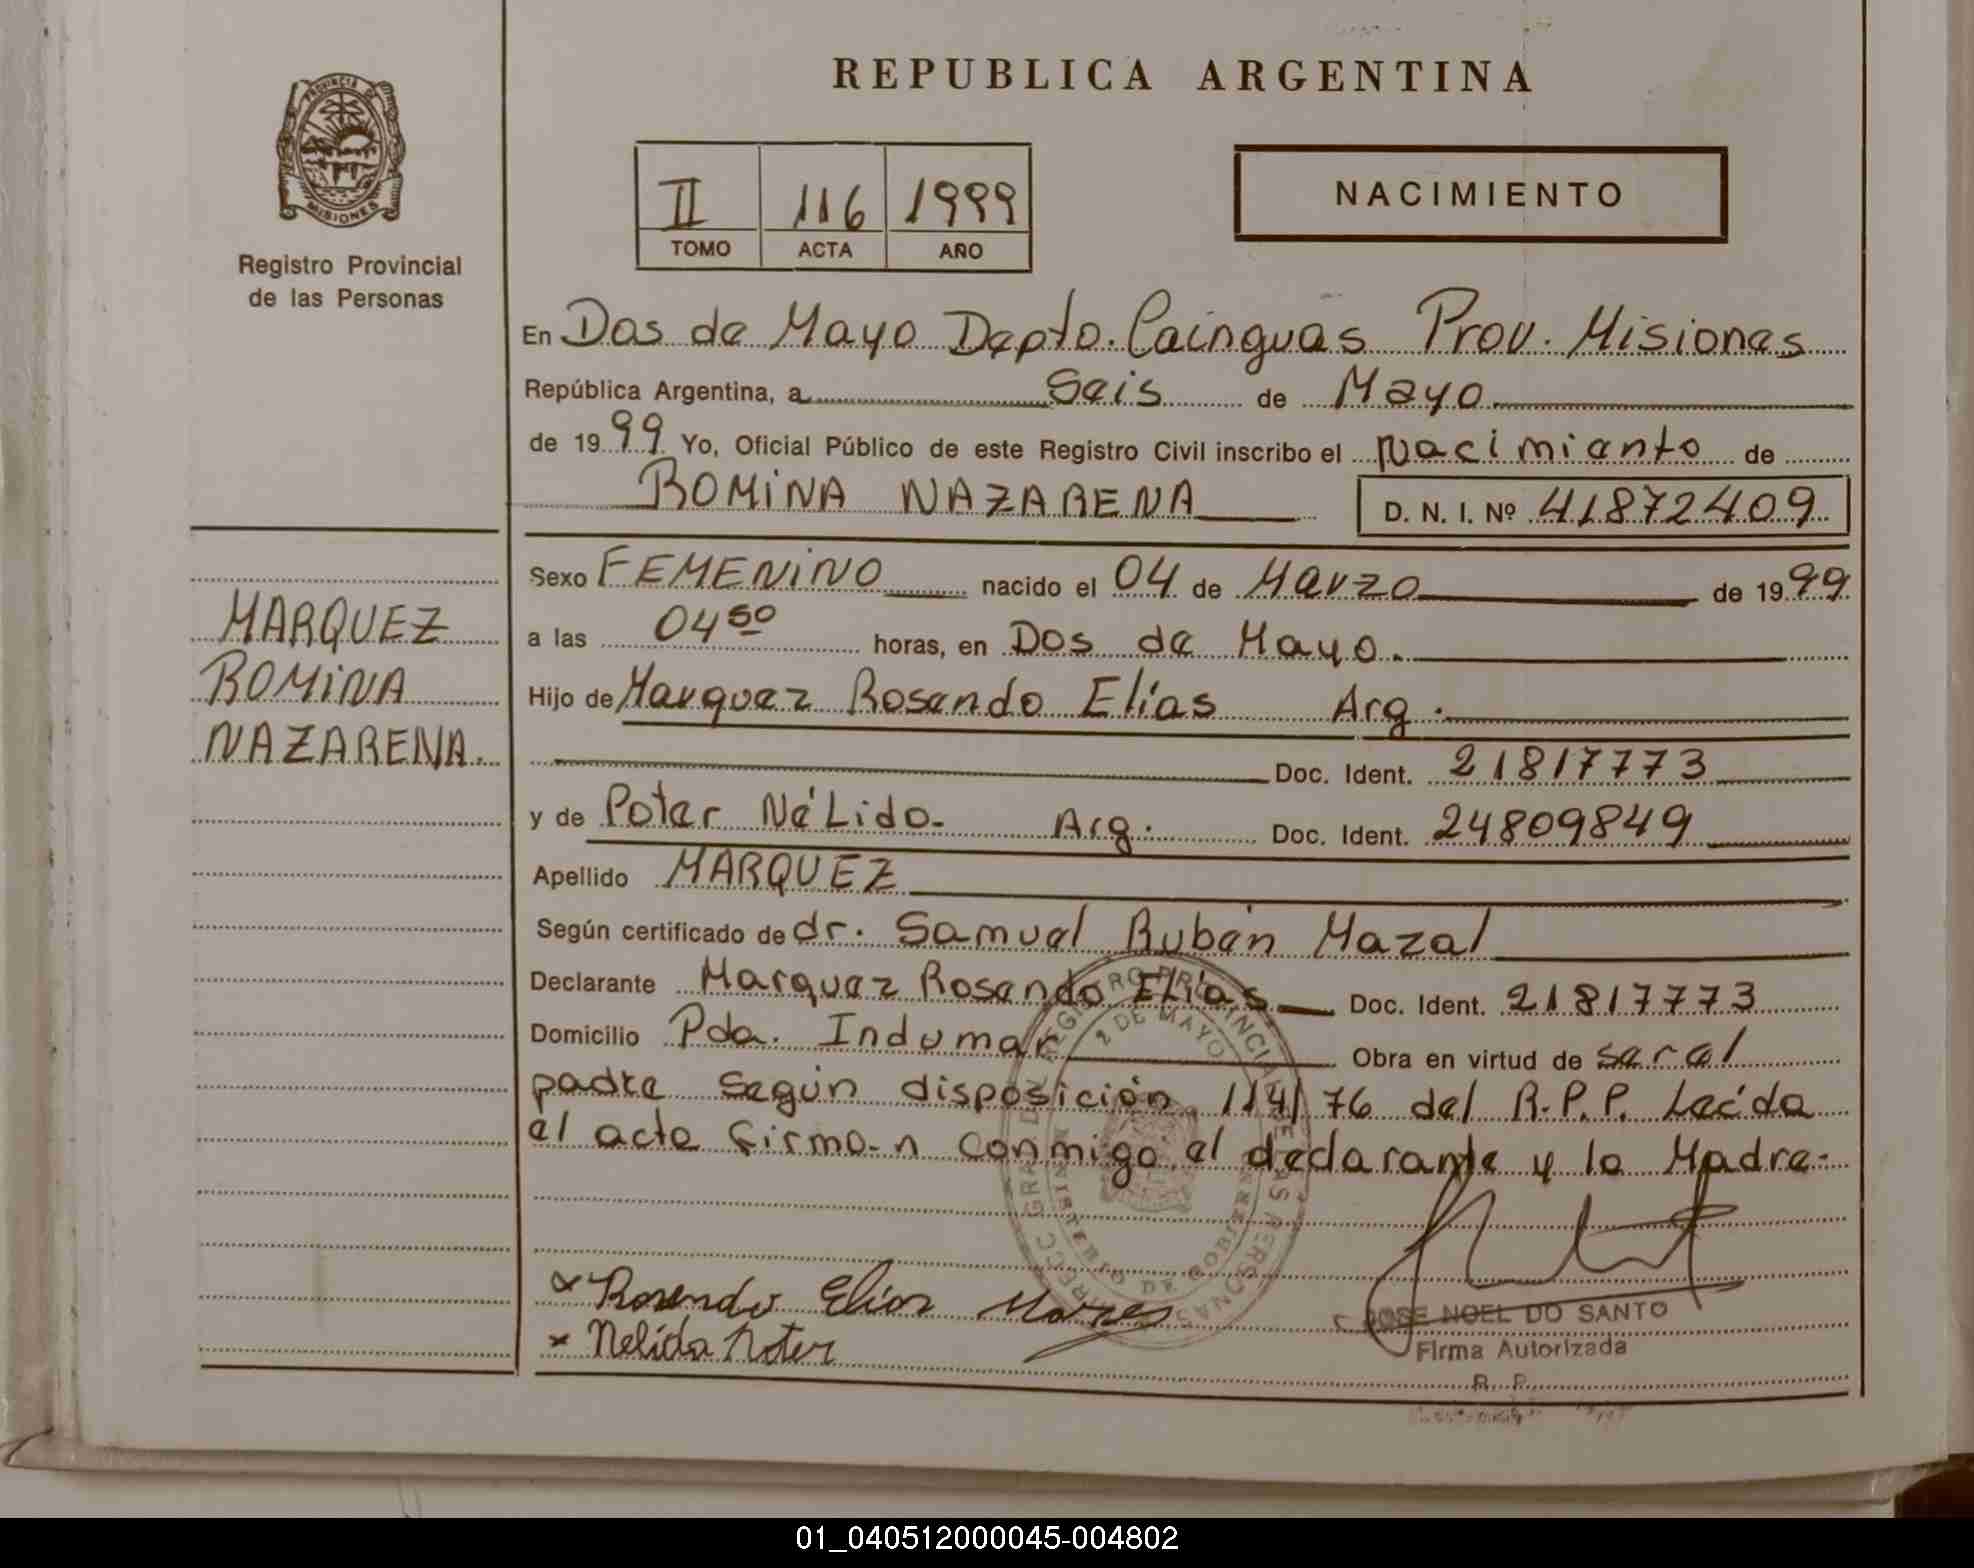 REPUBLICA ARGENTINA
PROVINCIA DE
MISIONES
Registro Provincial
de las Personas
II 116 1999
TOMO ACTA AÑO
NACIMIENTO
En Dos de Mayo Depto. Cainguás Prov. Misiones
República Argentina, a Seis de Mayo
de 1999 Yo, Oficial Público de este Registro Civil inscribo el Nacimiento de
ROMINA NAZARENA D. N. I. Nº 41872409
Sexo FEMENINO nacido el 04 de Marzo de 1999
a las 04 50 horas, en Dos de Mayo.
Hijo de Marquez Rosendo Elías Arg.
Doc. Ident. 21817773
y de Poter Nélida Arg. Doc. Ident. 24809849
Apellido MARQUEZ
Según certificado de dr. Samuel Rubén Mazal
Declarante Marquez Rosendo Elías Doc. Ident. 21817773
Domicilio Pda. Indumar Obra en virtud de ser el
padre según disposición 114/76 del R.P.P. Leída
el acta firma-n conmigo el declarante y la Madre-
MARQUEZ
ROMINA
NAZARENA.
2 DE MAYO
MINISTERIO DE GOBIERNO
x Rosendo Elias
x Nelida Poter
JOSE NOEL DO SANTO
Firma Autorizada
R. P.
01_040512000045-004802